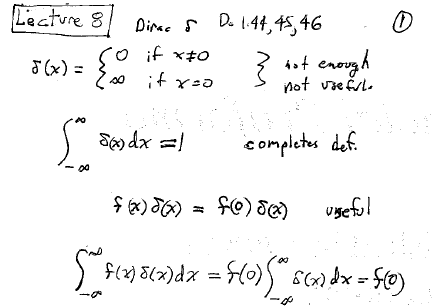 Lecture 8 Dirac δ Do 1.44, 45, 46 ①
δ(x) = { 0 if x≠0 } not enough
∞ if x=0 not useful.
∫_{-∞}^{∞} δ(x) dx = 1 completes def.
f(x) δ(x) = f(0) δ(x) useful
∫_{-∞}^{∞} f(x) δ(x) dx = f(0) ∫_{-∞}^{∞} δ(x) dx = f(0)